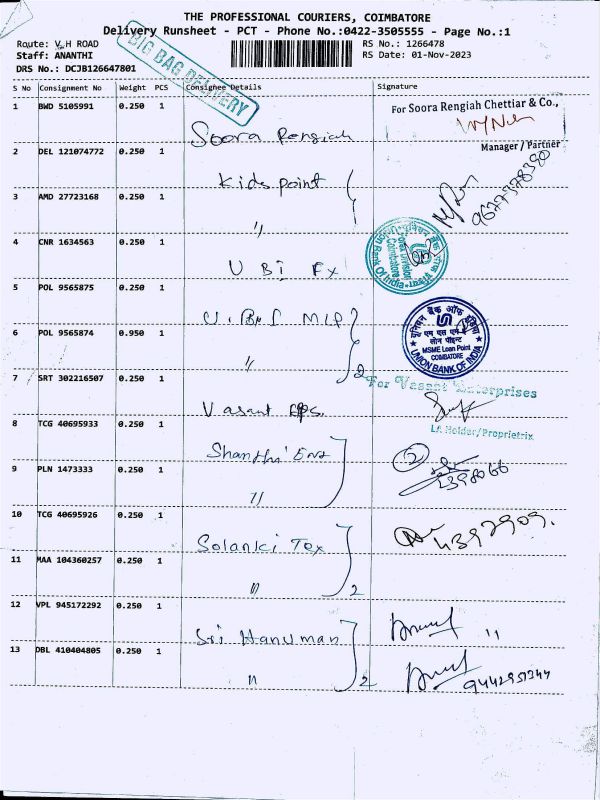 THE PROFESSIONAL COURIERS, COIMBATORE
Delivery Runsheet - PCT - Phone No.:0422-3505555 - Page No.:1
Route: V.H ROAD
RS No.: 1266478
Staff: ANANTHI
RS Date: 01-Nov-2023
DRS No.: DCJB126647801
BIG BAG DELIVERY
S No Consignment No Weight PCS Consignee Details Signature
1 BWD 5105991 0.250 1 Soora Rengiah
For Soora Rengiah Chettiar & Co.,
Manager / Partner
2 DEL 121074772 0.250 1 Kids point
3 AMD 27723168 0.250 1 "
4 CNR 1634563 0.250 1 U B I Fx
Union Bank Of India
Coimbatore
5 POL 9565875 0.250 1 U. B I MLP
6 POL 9565874 0.950 1 " 2
यूनियन बैंक ऑफ इंडिया
एम एस एम ई
लोन पॉइंट
MSME Loan Point
COIMBATORE
UNION BANK OF INDIA
7 SRT 302216507 0.250 1 Vasant
For Vasant Enterprises
LA Holder/Proprietrix
8 TCG 40695933 0.250 1 Shanthi Ent
2
9 PLN 1473333 0.250 1 "
10 TCG 40695926 0.250 1 Solanki Tex
11 MAA 104360257 0.250 1 " 2
12 VPL 945172292 0.250 1 Sri Hanuman "
13 DBL 410404805 0.250 1 " 2